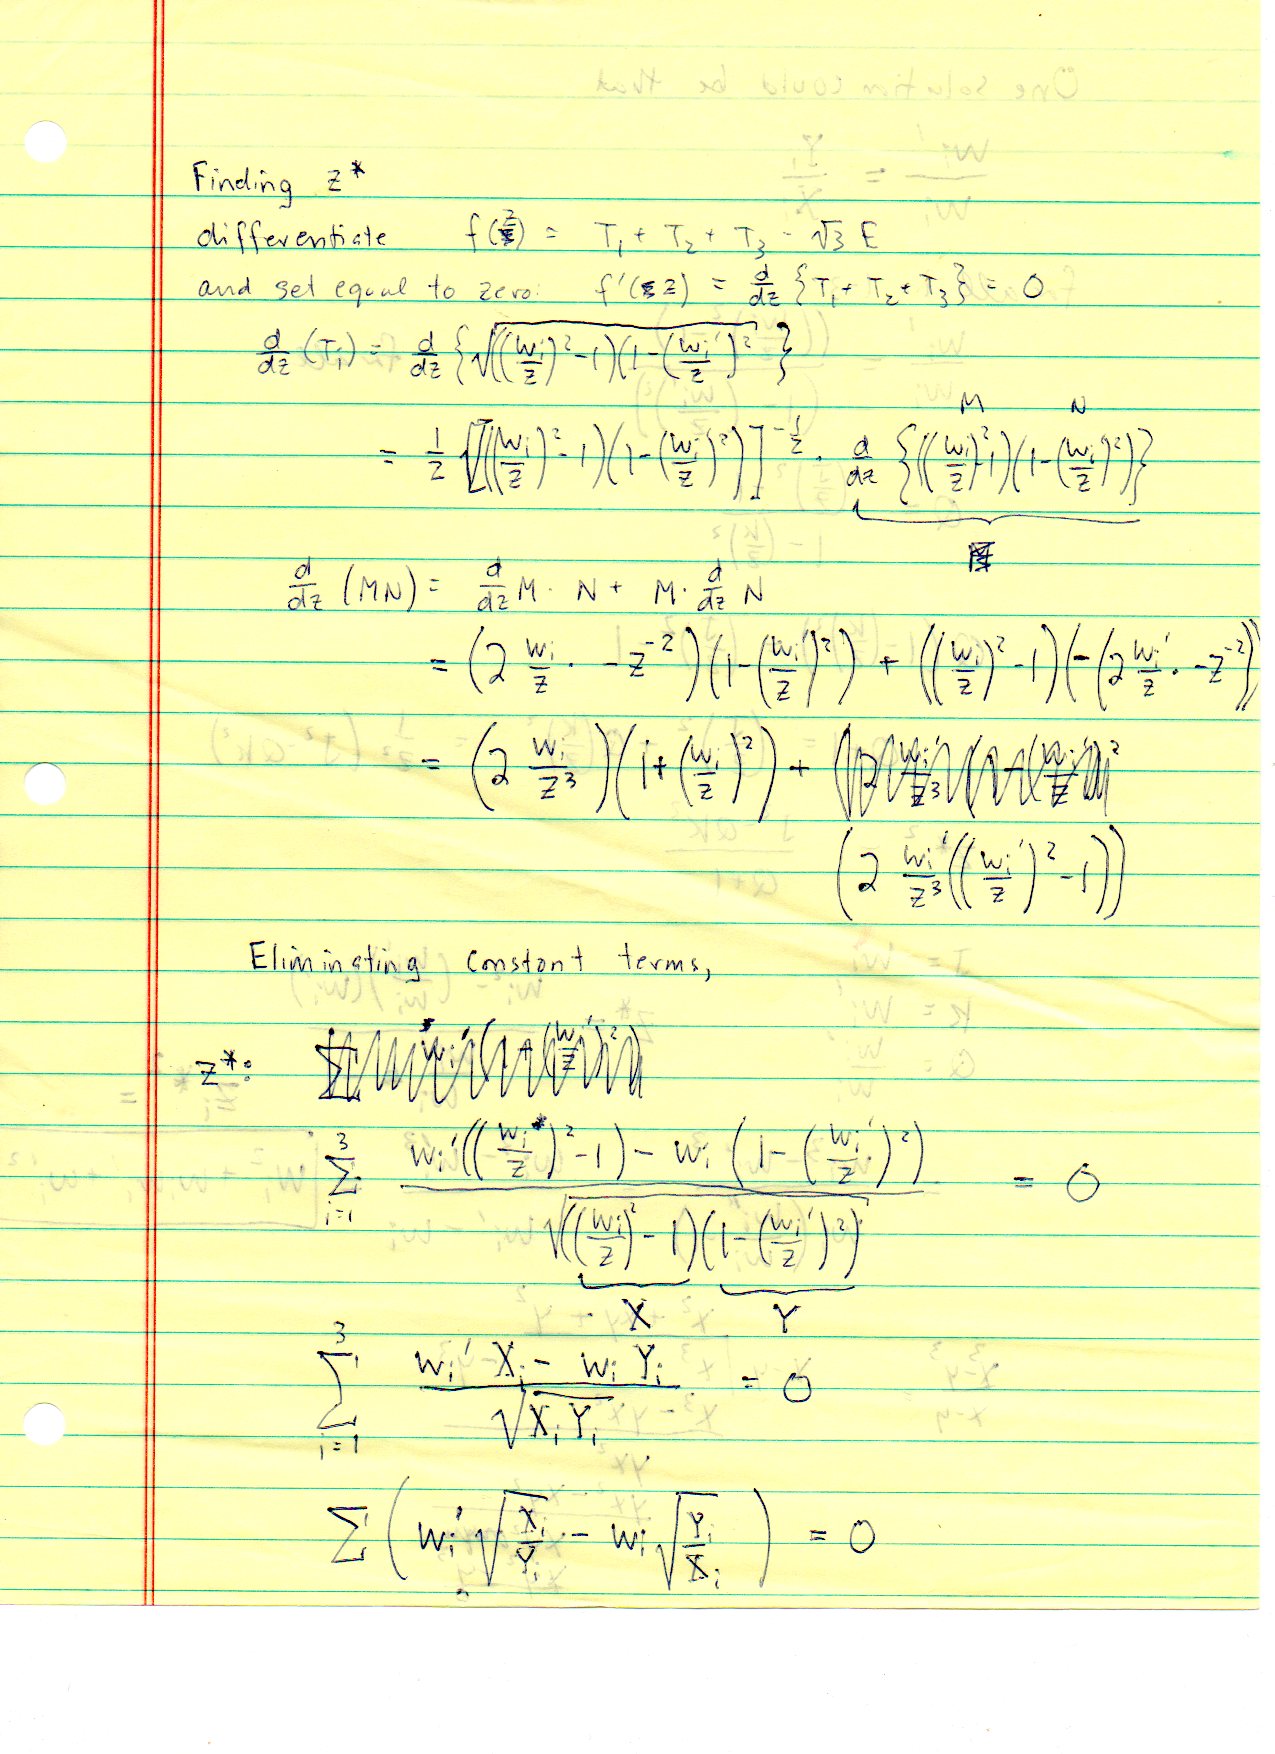 Finding z*
differentiate f(z) = T₁ + T₂ + T₃ - √3 E
and set equal to zero: f'(z) = d/dz {T₁ + T₂ + T₃} = 0
d/dz (Tᵢ) = d/dz {√((wᵢ/z)² - 1)(1 - (wᵢ'/z)²}
M N
= 1/2 [((wᵢ/z)² - 1)(1 - (wᵢ'/z)²)]^(-1/2) · d/dz {((wᵢ/z)² - 1)(1 - (wᵢ'/z)²)}
d/dz (MN) = d/dz M · N + M · d/dz N
= (2 wᵢ/z · -z⁻²)(1 - (wᵢ'/z)²) + ((wᵢ/z)² - 1)(-(2 wᵢ'/z · -z⁻²))
= (2 wᵢ/z³)(1 + (wᵢ'/z)²) +
(2 wᵢ'/z³((wᵢ'/z)² - 1))
Eliminating constant terms,
z*:
3 Σ i=1 (wᵢ'((wᵢ/z)² - 1) - wᵢ (1 - (wᵢ'/z)²)) / √((wᵢ/z)² - 1)(1 - (wᵢ'/z)²) = 0
X Y
3 Σ i=1 (wᵢ' Xᵢ - wᵢ Yᵢ) / √XᵢYᵢ = 0
Σ (wᵢ' √Xᵢ/Yᵢ - wᵢ √Yᵢ/Xᵢ) = 0